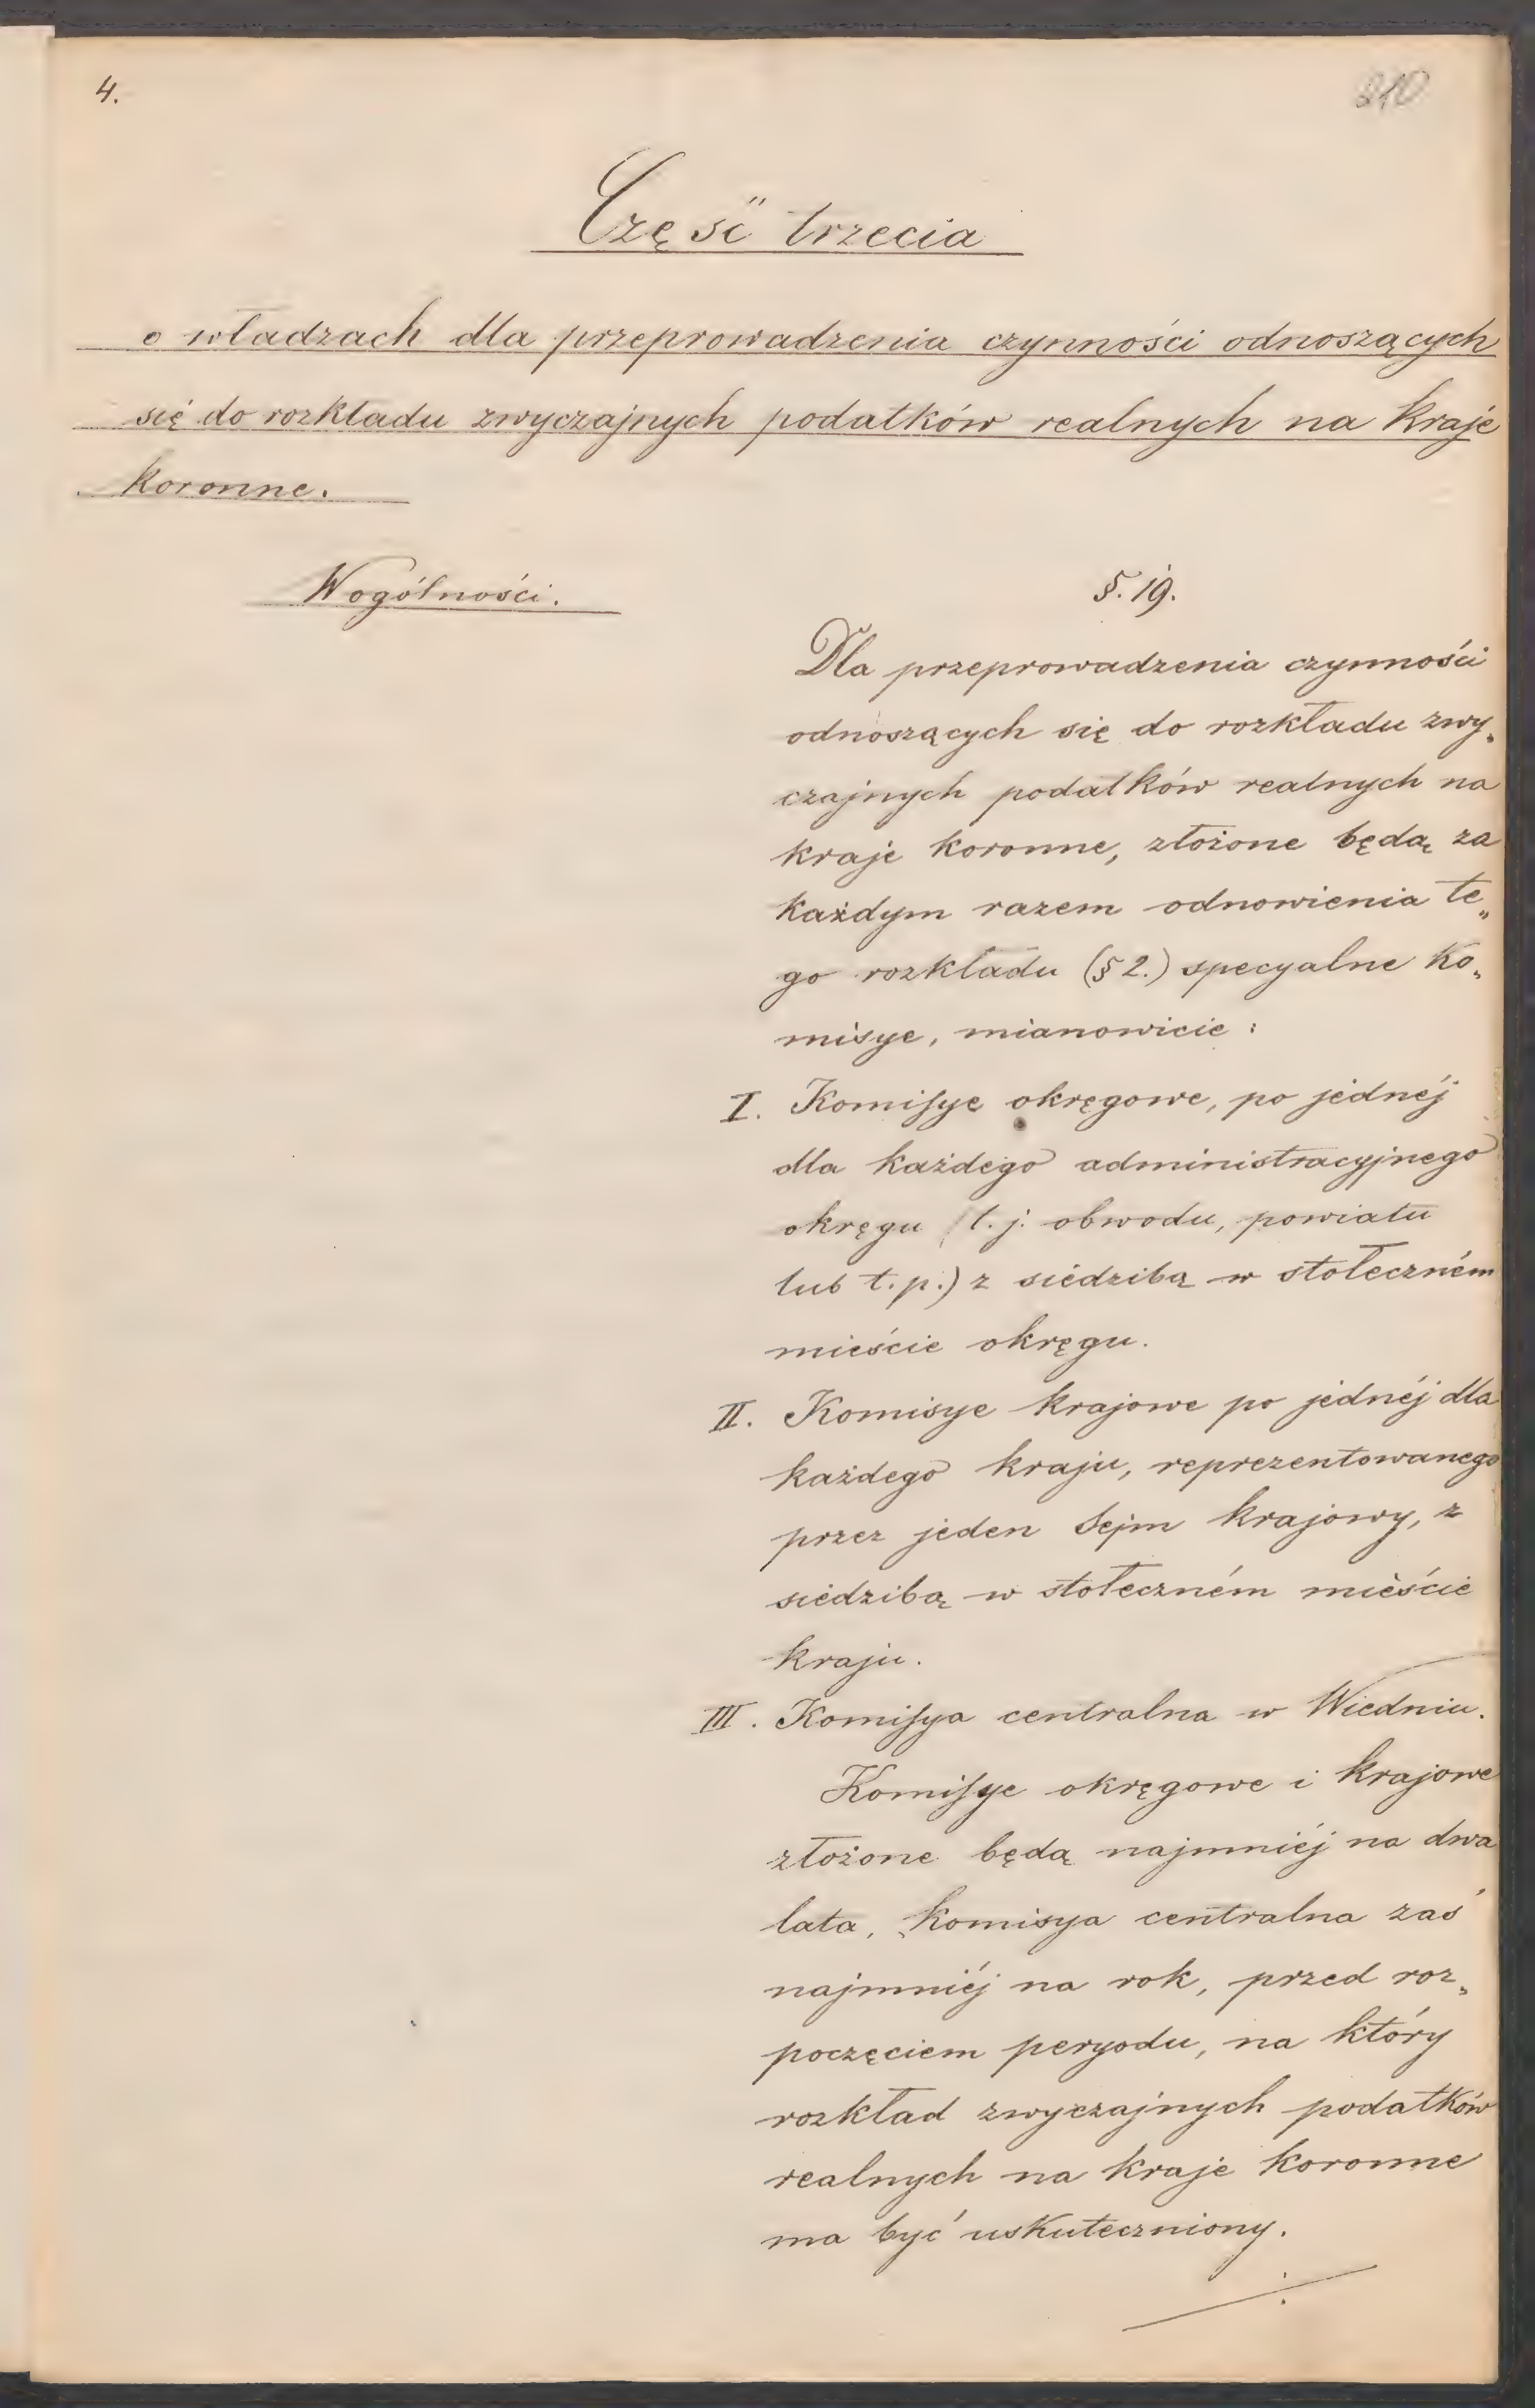 4.
210
Część trzecia
o władzach dla przeprowadzenia czynności odnoszących
się do rozkładu zwyczajnych podatków realnych na kraje
koronne.
Wogólności.
§. 19.
Dla przeprowadzenia czynności
odnoszących się do rozkładu zwy„
czajnych podatków realnych na
kraje koronne, złożone będą za
każdym razem odnowienia te„
go rozkładu (§ 2.) specyalne ko„
misye, mianowicie:
I. Komisye okręgowe, po jednéj
dla każdego administracyjnego
okręgu (t. j. obwodu, powiatu
lub t. p.) z siedzibą w stołeczném
mieście okręgu.
II. Komisye krajowe po jednéj dla
każdego kraju, reprezentowanego
przez jeden Sejm krajowy, z
siedzibą w stołeczném mieście
kraju.
III. Komisya centralna w Wiedniu.
Komisye okręgowe i krajowe
złożone będą najmniéj na dwa
lata, komisya centralna zaś
najmniéj na rok, przed roz„
poczęciem peryodu, na który
rozkład zwyczajnych podatków
realnych na kraje koronne
ma być uskuteczniony.